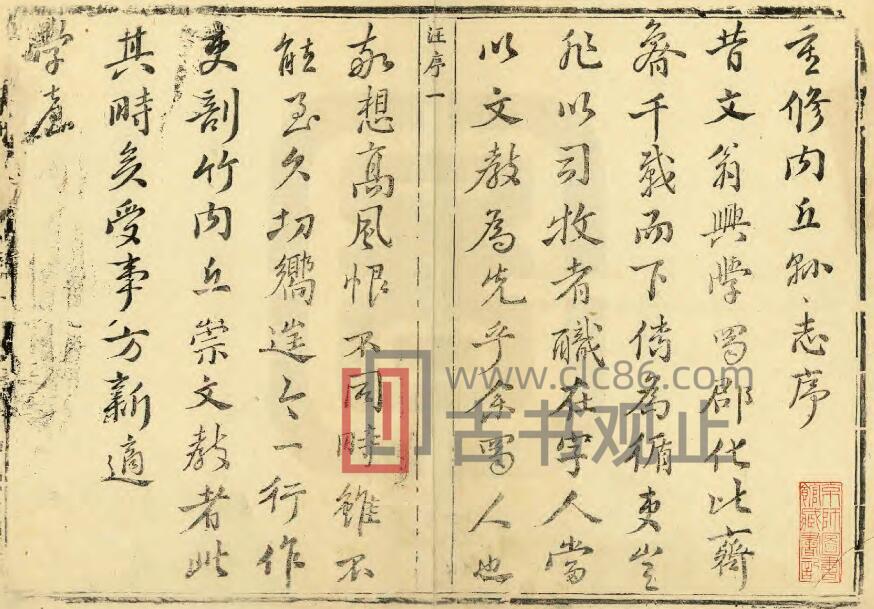 重修内丘縣志序
昔文翁興學蜀郡化比齊
魯千載而下傳為循吏豈
非以司牧者職在宰人當
以文教為先乎余蜀人也
汪序一
敬想高風恨不同時雖不
能至久切嚮今一行作
吏剖竹内丘崇文教者此
其時矣受事方新適
學臺
京師圖書
館藏書印
www.clc86.com
古书观止